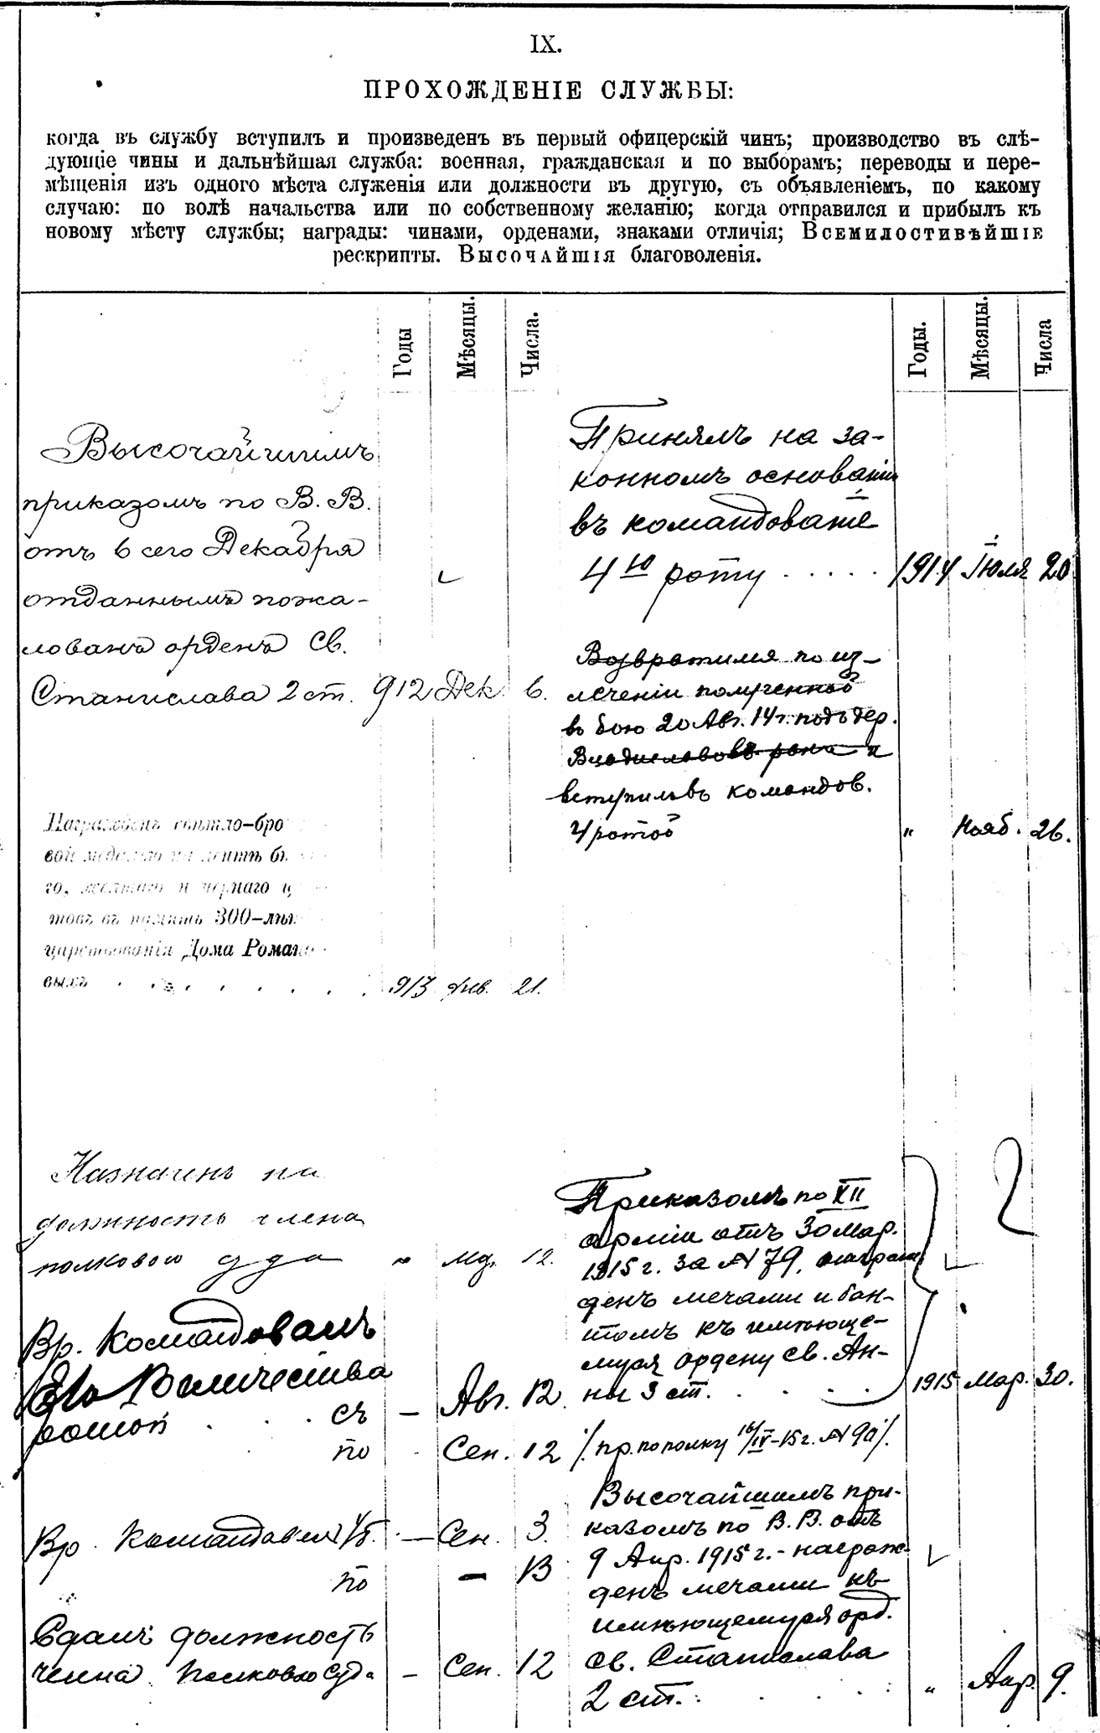 IX.
ПРОХОЖДЕНІЕ СЛУЖБЫ:
когда въ службу вступилъ и произведенъ въ первый офицерскій чинъ; производство въ слѣ-
дующіе чины и дальнѣйшая служба: военная, гражданская и по выборамъ; переводы и пере-
мѣщенія изъ одного мѣста служенія или должности въ другую, съ объявленіемъ, по какому
случаю: по волѣ начальства или по собственному желанію; когда отправился и прибылъ къ
новому мѣсту службы; награды: чинами, орденами, знаками отличія; Всемилостивѣйшіе
рескрипты. Высочайшія благоволенія.
Годы
Мѣсяцы.
Числа.
Высочайшимъ
приказомъ по В. В.
отъ 6 сего Декабря
отданнымъ пожа-
лованъ орденъ Св.
Станислава 2 ст. 912 Дек. 6.
Награжденъ свѣтло-бро
вой медалью на лентѣ бѣ
го, желтаго и чернаго ц
товъ въ память 300-лѣт
царствованія Дома Романо
выхъ . . . . . . . 913 Фев. 21.
Назначенъ на
должность члена
полкового суда " Мд. 12.
Вр. Командовалъ
Его Величества
ротой . . съ — Авг. 12.
по Сен. 12
Вр. Командовалъ Iб. — Сен. 3.
по — 13
Сдалъ должность
члена полкового суда — Сен. 12
Годы.
Мѣсяцы.
Числа
Принялъ на за-
конномъ основаніи
въ командованіе
4ю роту . . . . . 1914 Іюля 20
Возвратился по из-
леченіи полученной
въ бою 20 Авг. 14 г. подъ дер.
Владиславовъ раны и
вступилъ въ командов.
4 ротой " Нояб. 26.
Приказомъ по XII
арміи отъ 30 Мар.
1915 г. за № 79, награж
денъ мечами и бан-
томъ къ имѣюще-
муся ордену св. Ан-
ны 3 ст. . . . . 1915 Мар. 30.
/. пр. по полку 16/IV-15 г. № 90/.
Высочайшимъ при-
казомъ по В. В. отъ
9 Апр. 1915 г. - награж-
денъ мечами къ
имѣющемуся орд.
св. Станислава
2 ст. . . . . " Апр. 9.